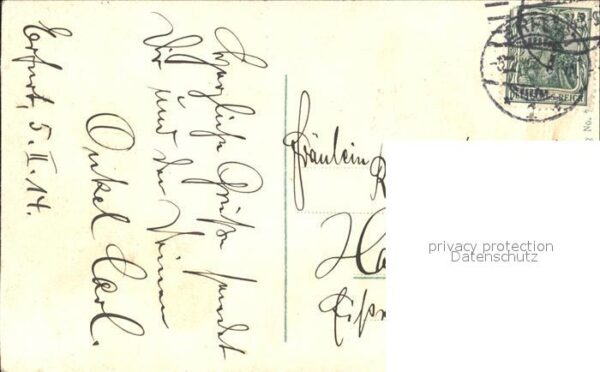 Erfurt, 5. II. 14.
Herzliche Grüße sendet
Dir und den Deinen
Onkel Carl.
Fräulein
Ha
privacy protection
Datenschutz